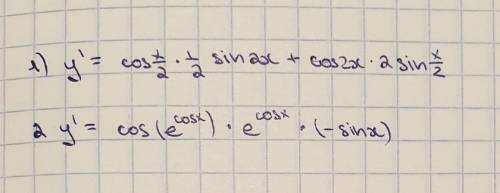 1) y' = cos x/2 · 1/2 sin 2x + cos2x · 2 sin x/2
2 y' = cos(e^cosx) · e^cosx · (-sinx)